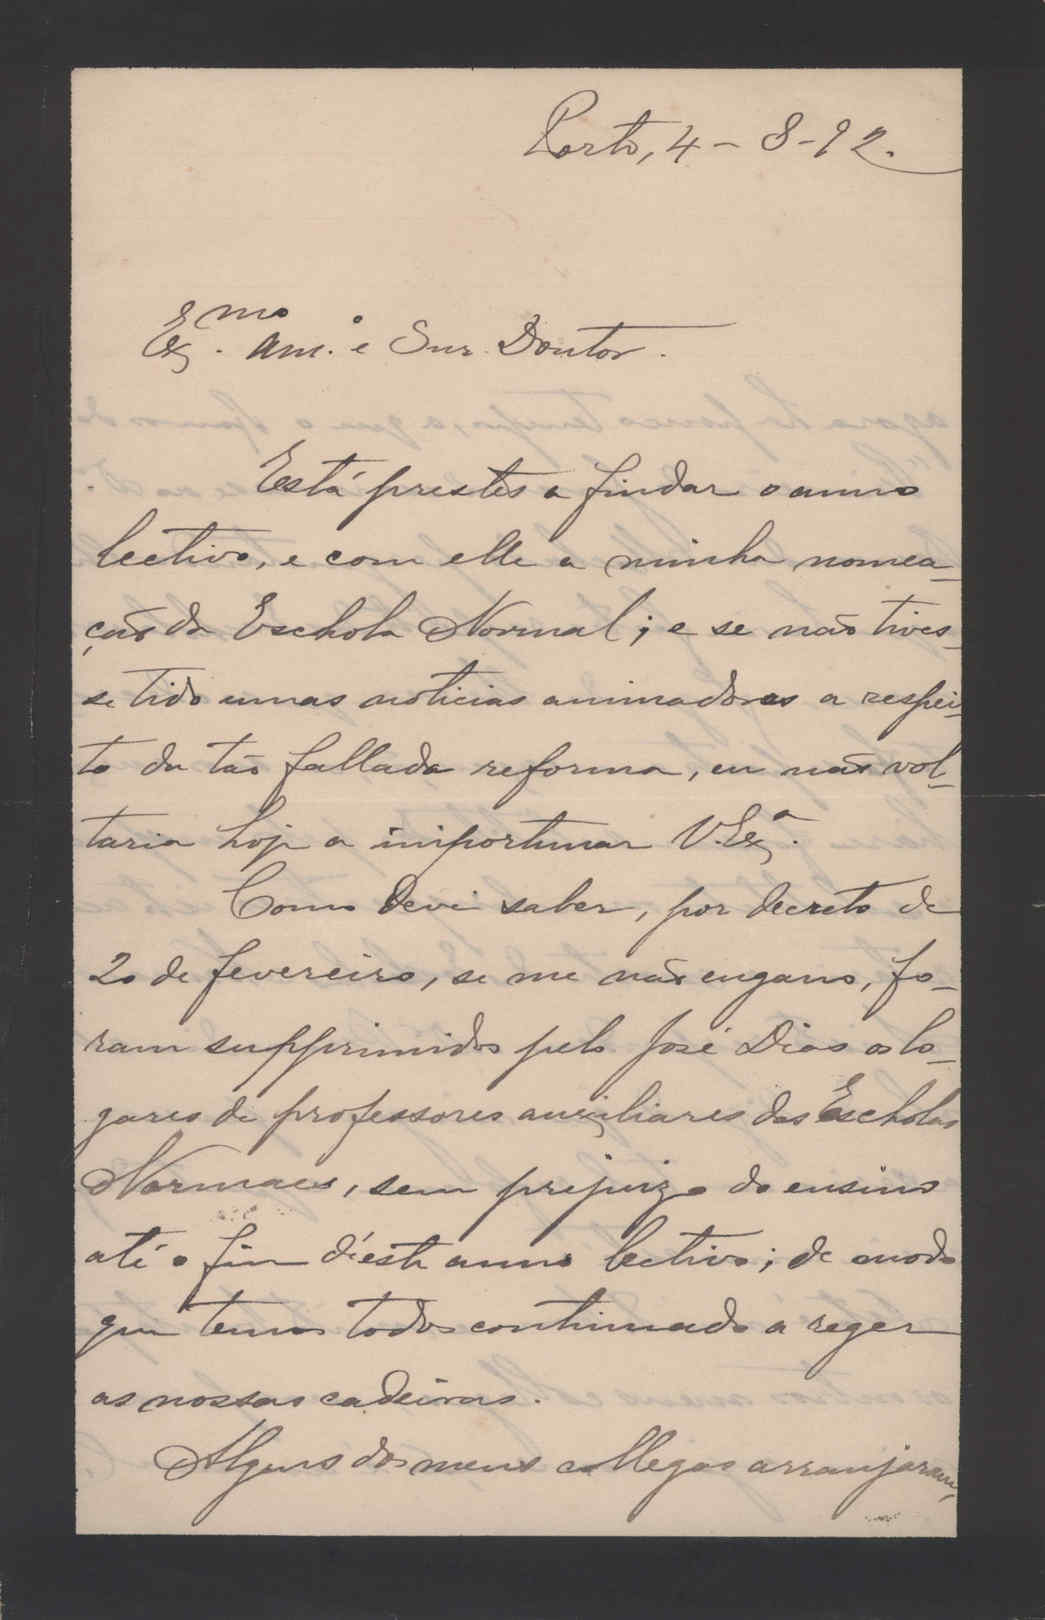 Porto, 4-8-92.
Ex.mo Am.o e Snr. Doutor.
Está prestes a findar o anno
lectivo, e com elle a minha nomea-
ção da Eschola Normal; e se não tives-
se tido umas noticias animadoras a respei-
to da tão fallada reforma, eu não vol-
taria hoje a importunar V. Ex.a.
Como deve saber, por decreto de
20 de fevereiro, se me não engano, fo-
ram supprimidos pelo José Dias os lo-
gares de professores auxiliares das Escholas
Normaes, sem prejuizo do ensino
até o fim d'este anno lectivo; de modo
que temos todos continuado a reger
as nossas cadeiras.
Alguns dos meus collegas arranjaram,